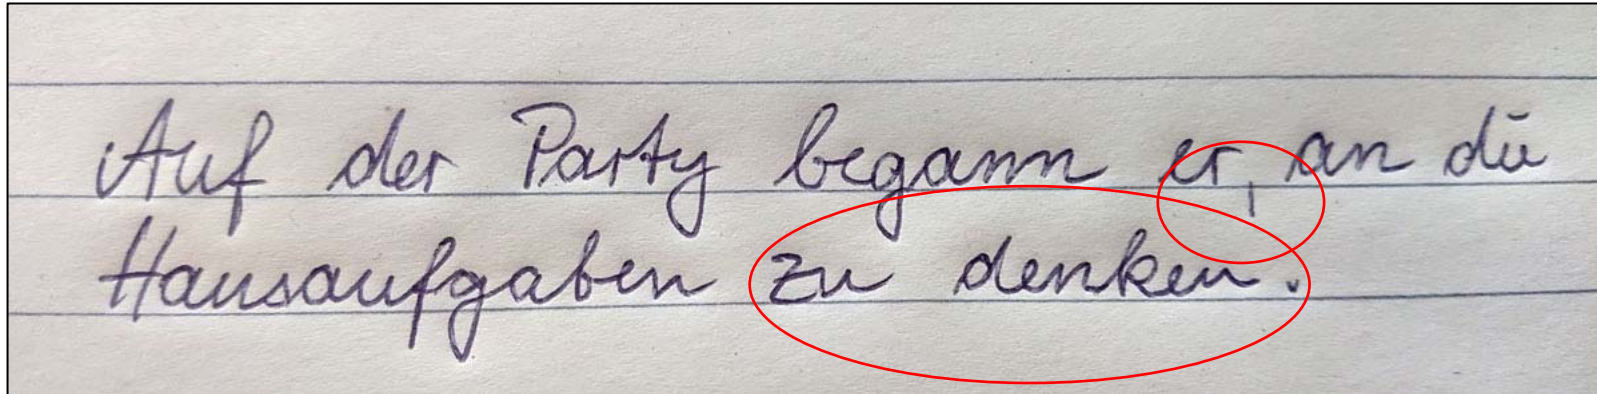 Auf der Party begann er, an die
Hausaufgaben zu denken.